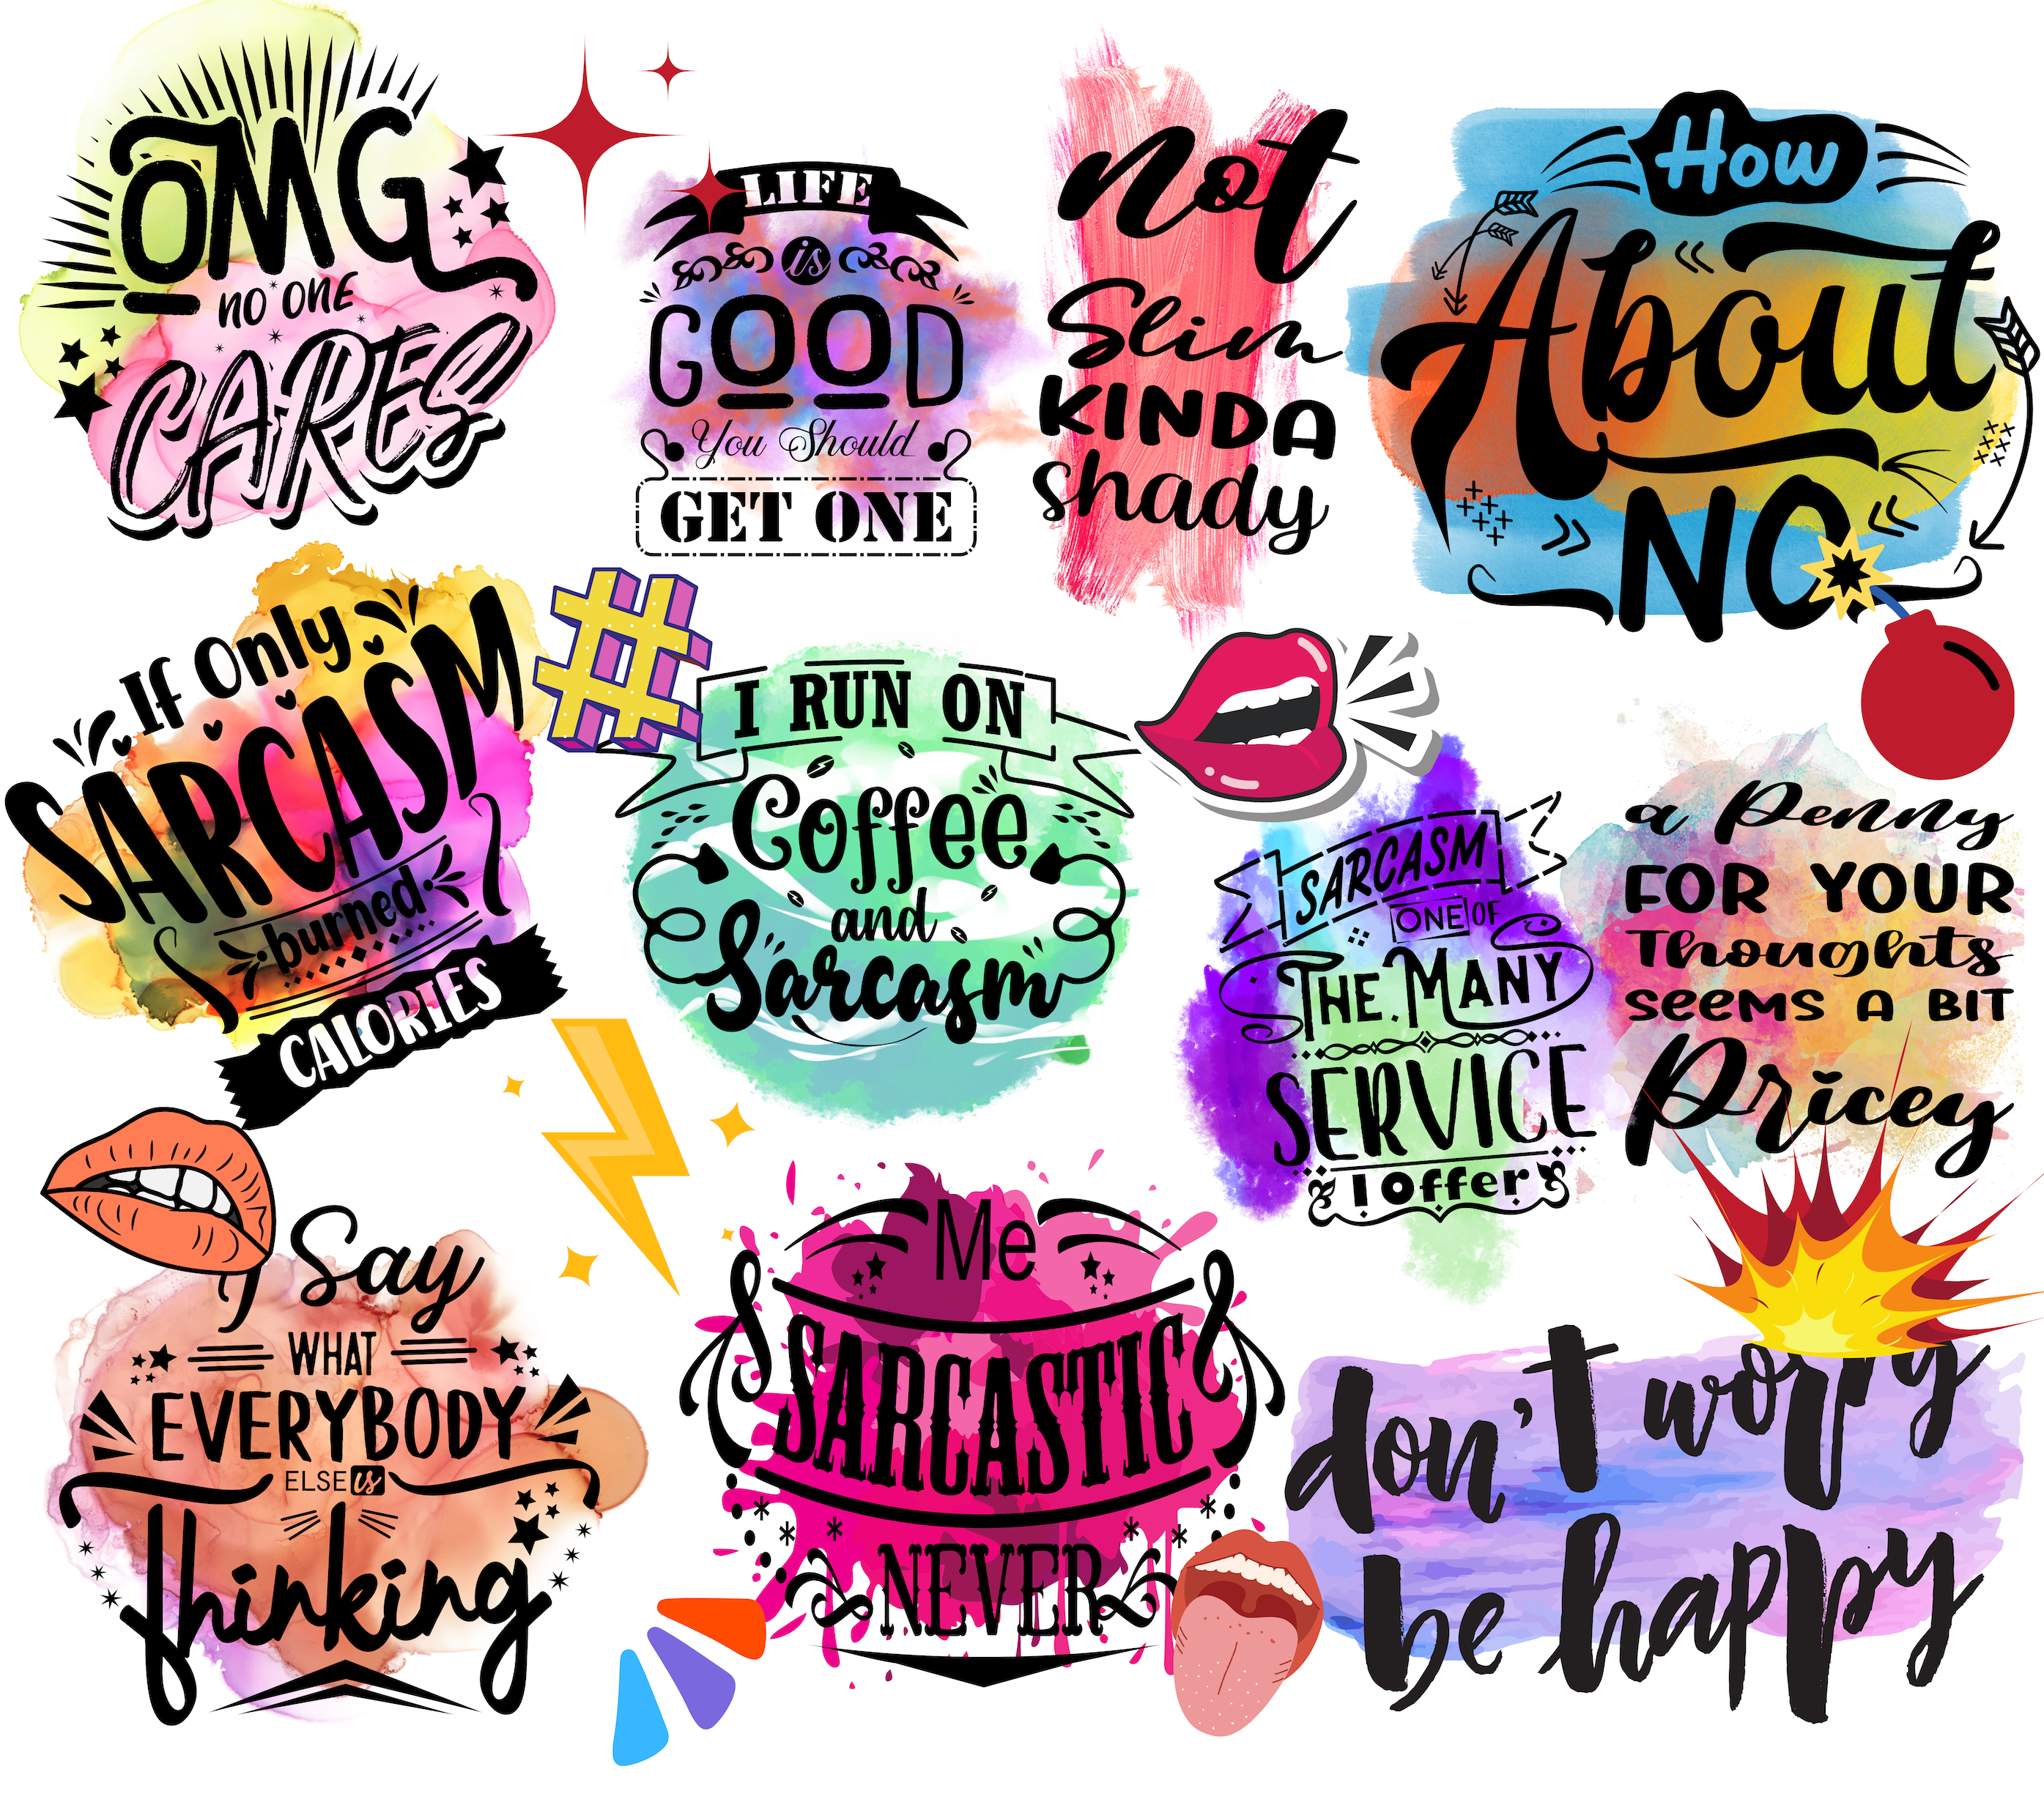 OMG
NO ONE
CARES
LIFE
is
GOOD
You Should
GET ONE
not
Slim
KINDA
shady
How
About
NO
If Only
SARCASM
burned
CALORIES
I RUN ON
Coffee
and
Sarcasm
SARCASM
ONE OF
THE MANY
SERVICE
I Offer
a Penny
FOR YOUR
Thoughts
SEEMS A BIT
Pricey
I Say
WHAT
EVERYBODY
ELSE is
Thinking
Me
SARCASTIC
NEVER
don't worry
be happy